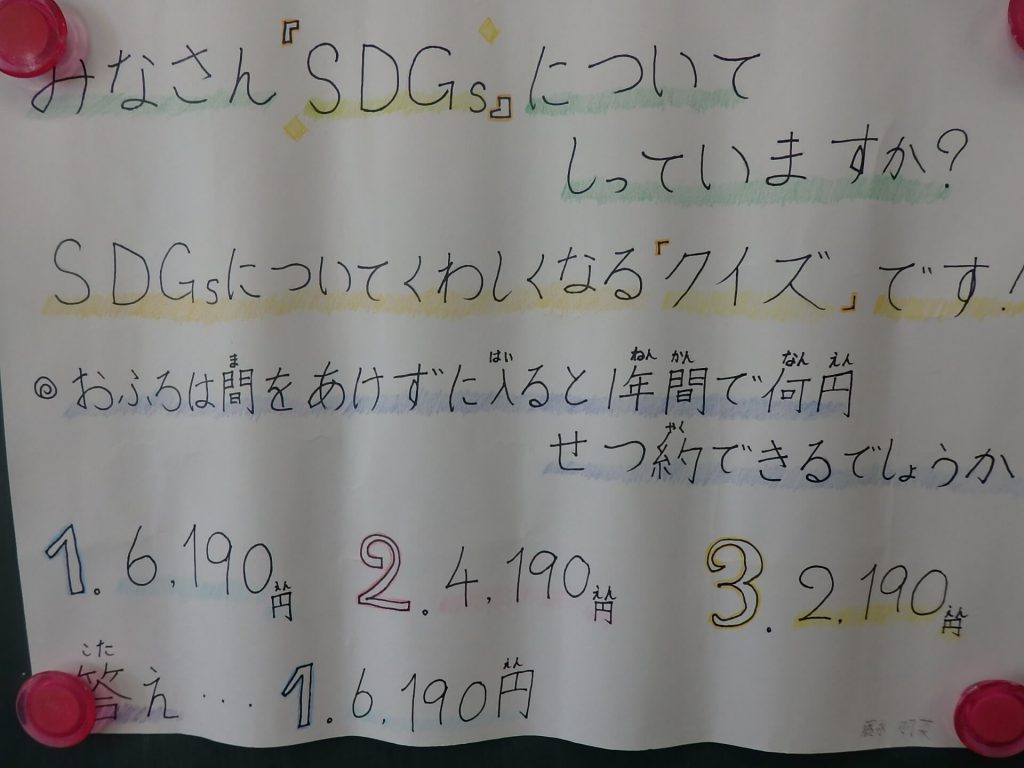 みなさん『SDGs』について
しっていますか?
SDGsについてくわしくなる「クイズ」です!
◎おふろは間をあけずに入ると1年間で何円
せつ約できるでしょうか
1. 6,190円 2. 4,190円 3. 2,190円
答え… 1. 6,190円